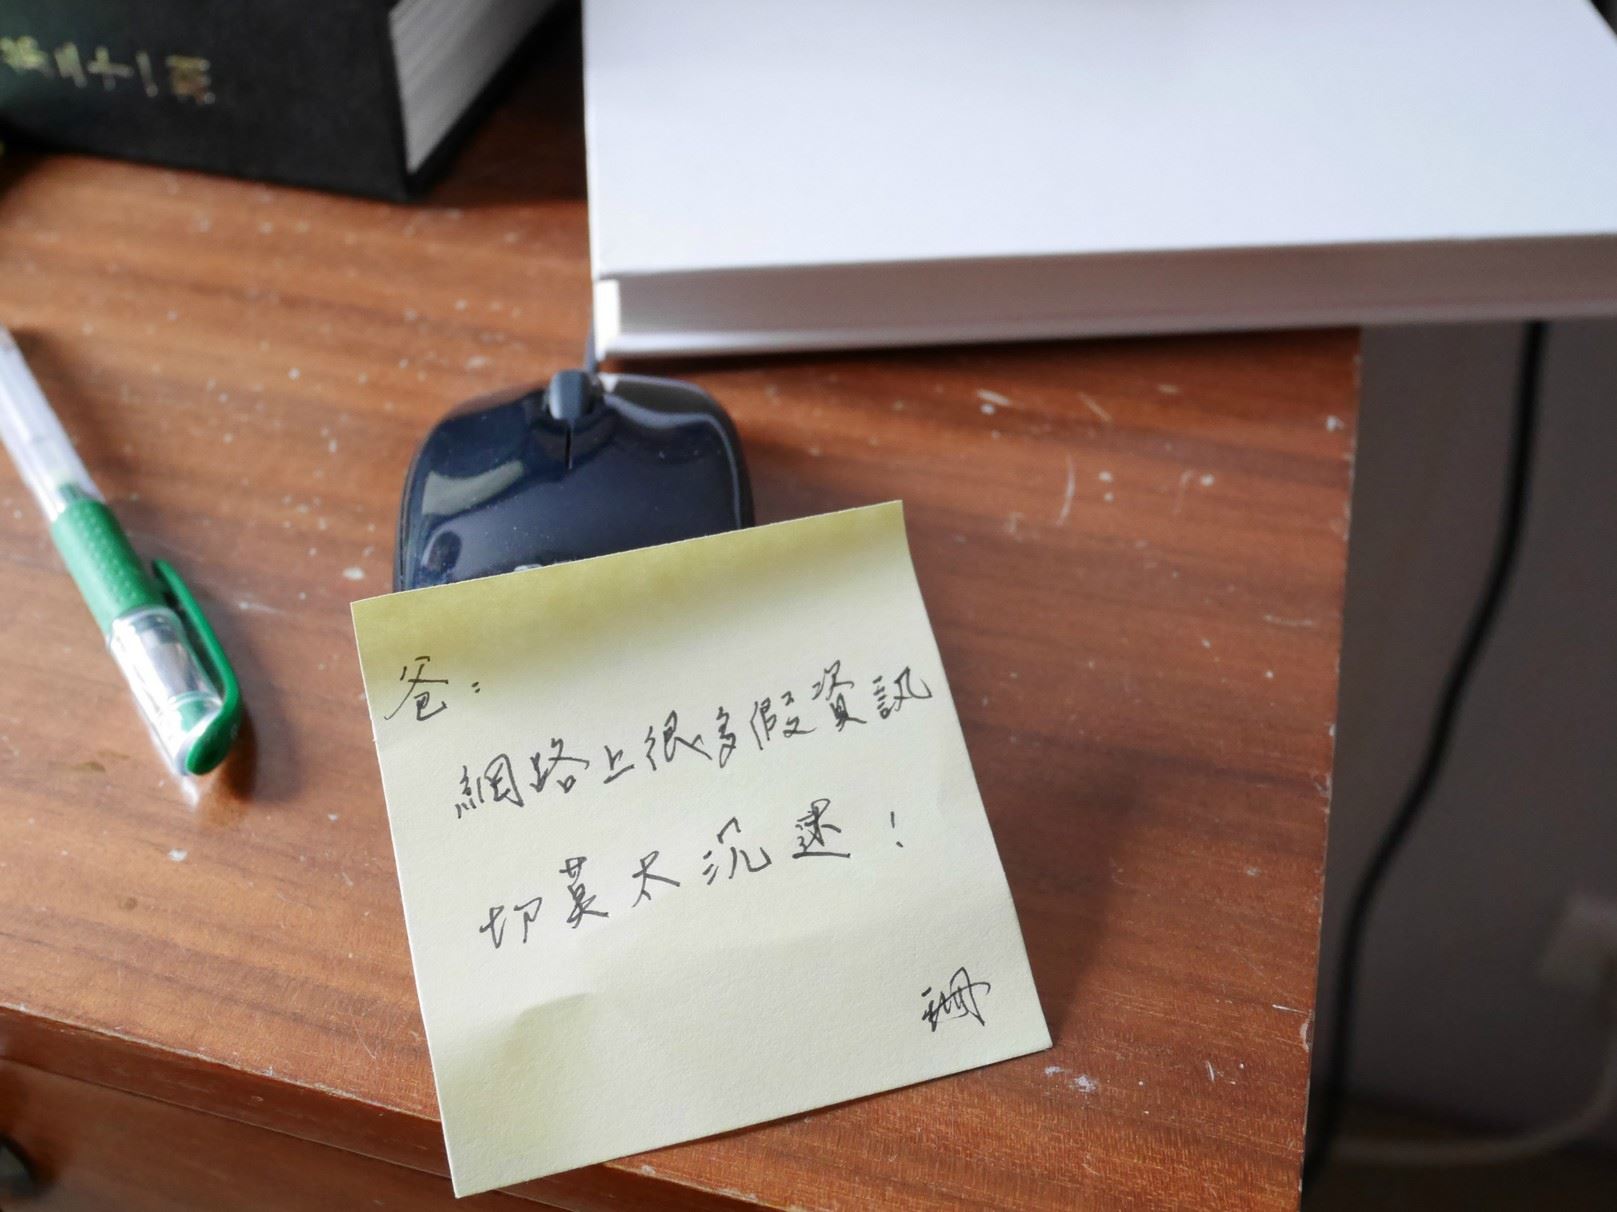 爸：
網路上很多假資訊
切莫太沉迷！
珊